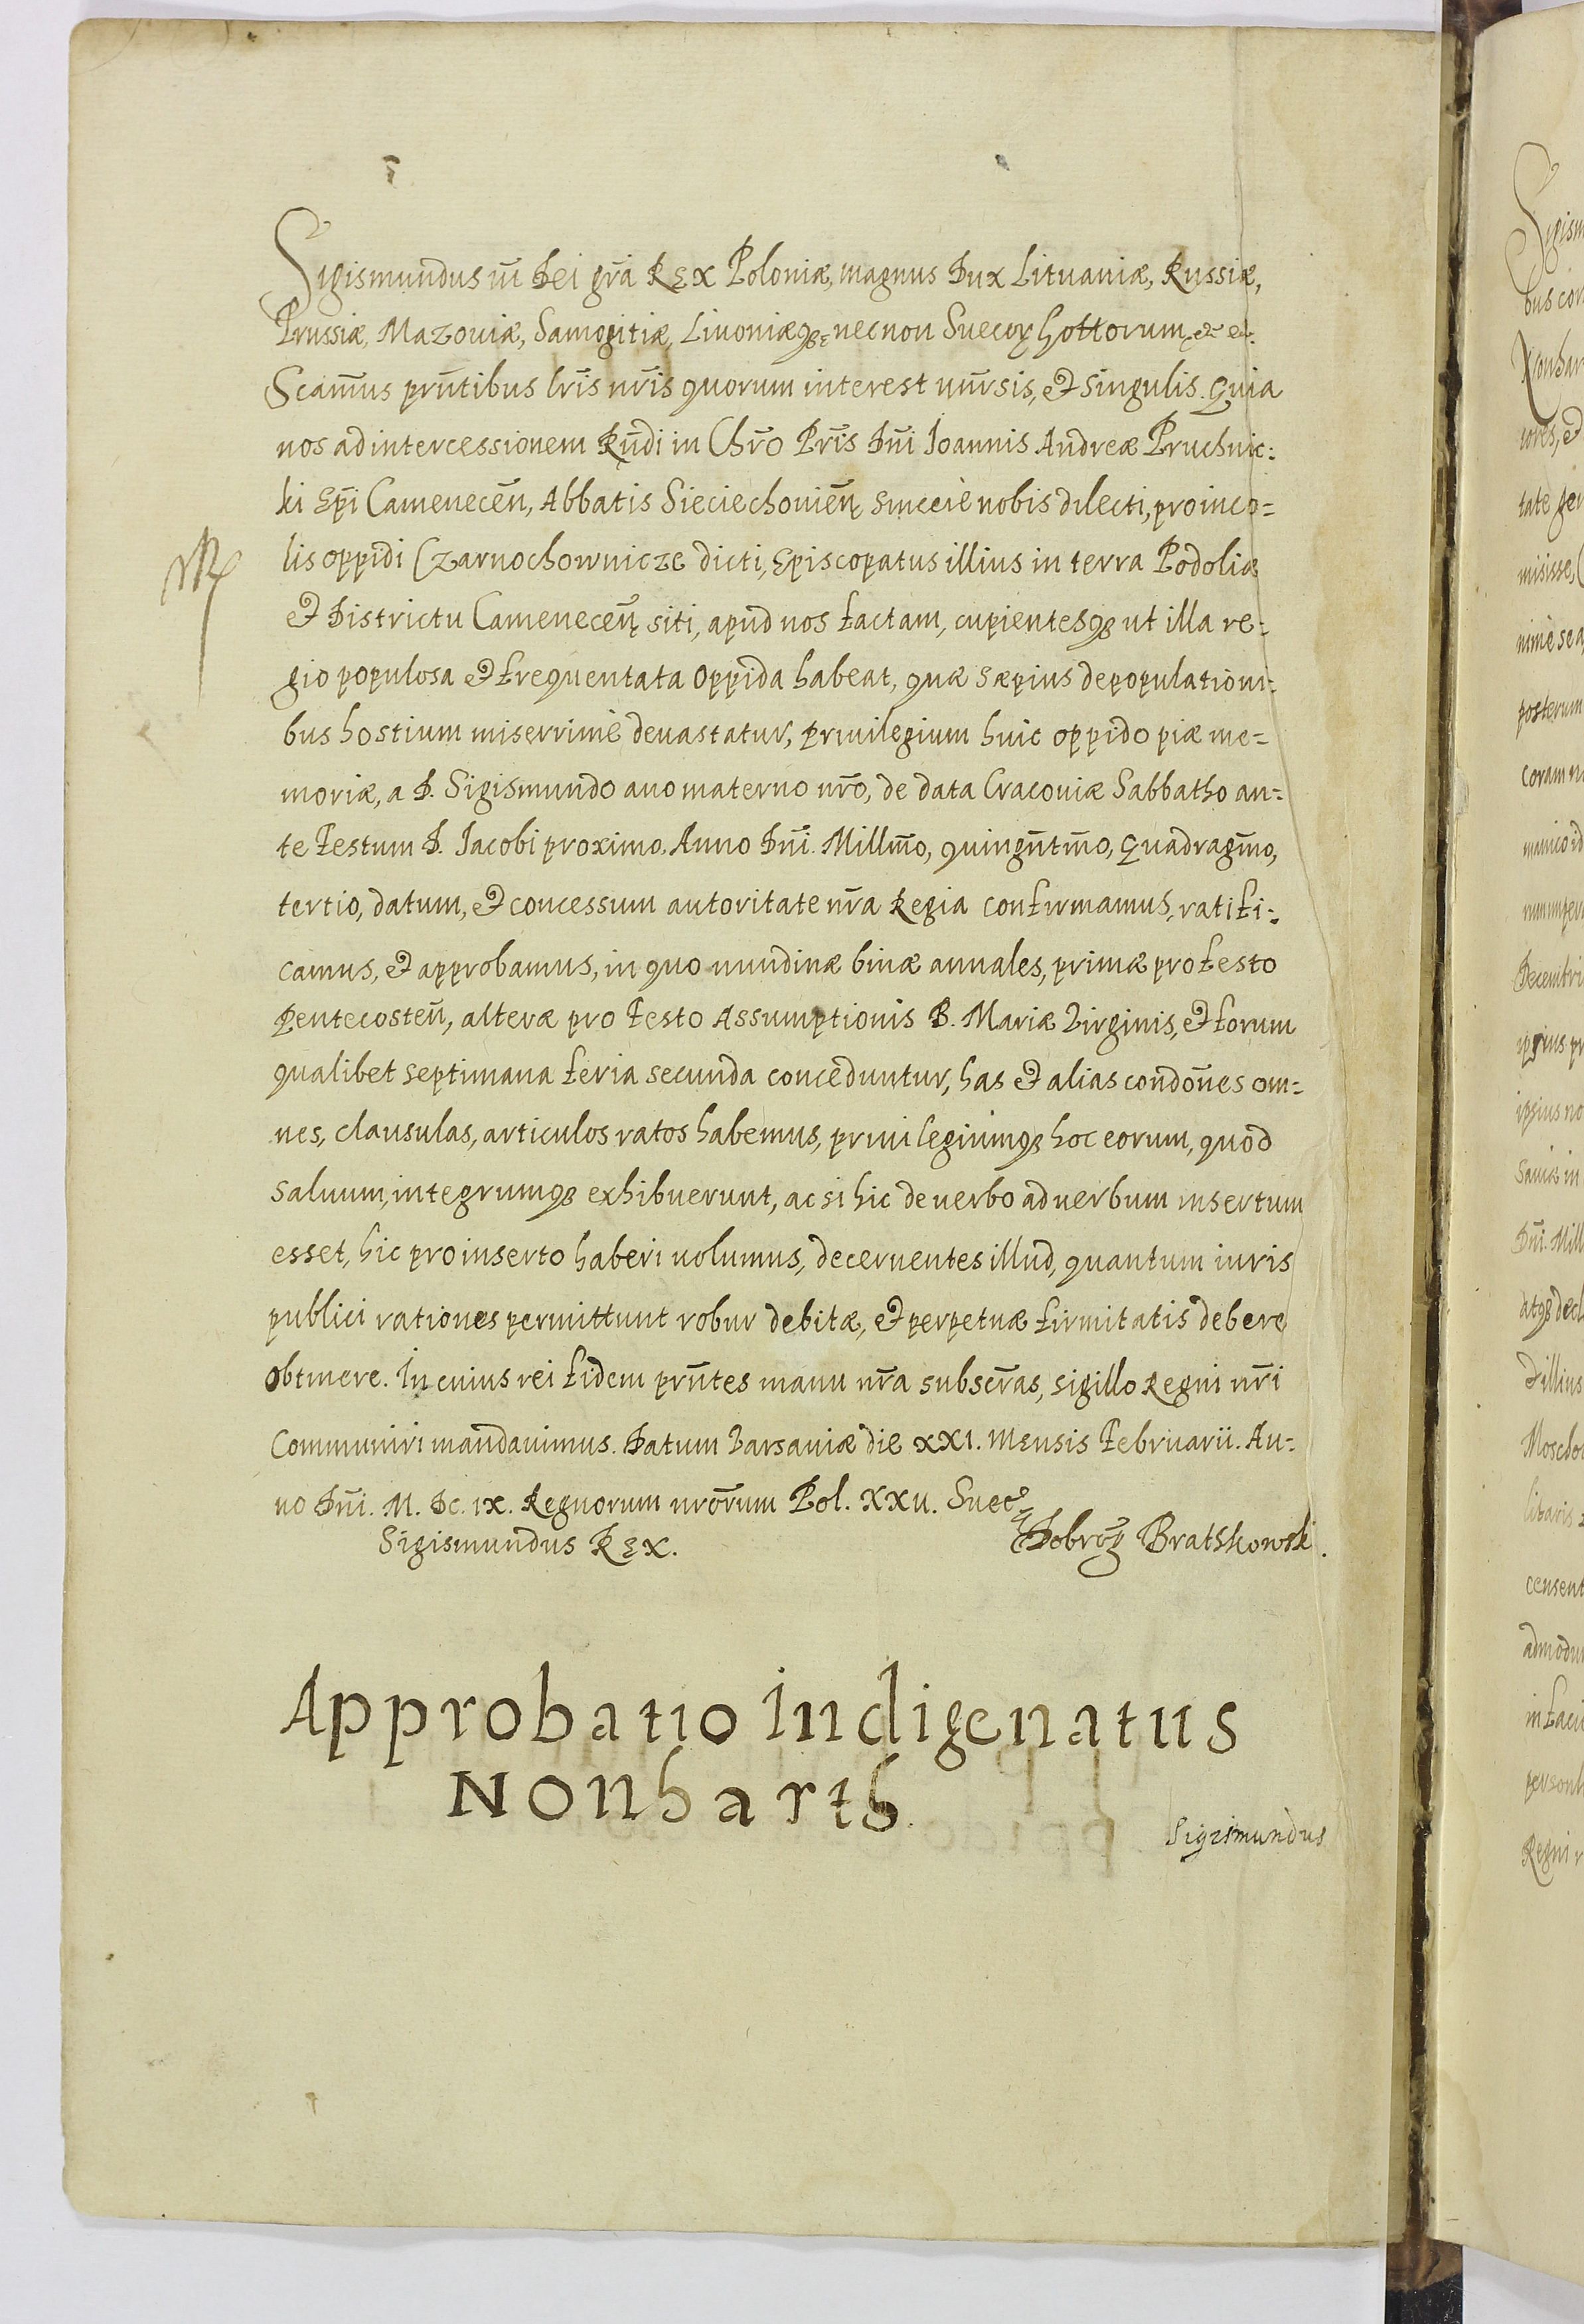 Sigismundus iii Dei grã Rex Poloniæ, magnus Dux Lituaniæ, Russiæ,
Prussiæ, Mazouiæ, Samogitiæ, Liuoniæq3 necnon Suecoꝝ hottorum,
Scam̃us prñtibus lr̃is nr̃is quorum interest uñrsis, et singulis. Quia
nos ad intercessionem Rñdi in Chr̃o Pr̃is Dñi Ioannis Andreæ Pruchnic:
ki Ep̃i Camenecen̄, Abbatis Sieciechouien̄, sinceiè nobis dilecti, pro inco=
lis oppidi Czarnochownicze dicti, Episcopatus illius in terra Podoliæ
et Districtu Camenecen̄ siti, apud nos factam, cupientesq3 ut illa re=
gio populosa et frequentata oppida habeat, quæ sæpius depopulationi=
bus hostium miserrimè deuastatur, Priuilegium huic oppido piæ me=
moriæ, a D. Sigismundo auo materno nr̃o, de data Cracouiæ Sabbatho an=
te Festum D. Iacobi proximo. Anno Dñi. Millm̃o, quingñtm̃o, Quadragm̃o,
tertio, datum, et concessum autoritate nr̃a Regia confirmamus, ratifi=
camus, et approbamus, in quo nundinæ binæ annales, primæ pro festo
Pentecosten̄, alteræ pro Festo Assumptionis B. Mariæ Virginis, et forum
qualibet septimana feria secunda conceduntur, has et alias condoñes om=
nes, clausulas, articulos ratos habemus, priuilegiumq3 hoc eorum, quod
saluum, integrumq3 exhibuerunt, ac si hic de uerbo ad uerbum insertum
esset, hic pro inserto haberi uolumus, decernentes illud, quantum iuris
publici rationes permittunt robur debitæ, et perpetuæ firmitatis debere
obtinere. In cuius rei fidem prñtes manu nr̃a subscr̃as, sigillo Regni nr̃i
Communiri mandauimus. Datum Varsauiæ die XXI. Mensis Februarii. An=
no Dñi. M. DC. IX. Regnorum nrõrum Pol. XXII. Suec
Sigismundus Rex. Bratskowski.
Approbatio Indigenatus
Nonharth.
Sigismundus